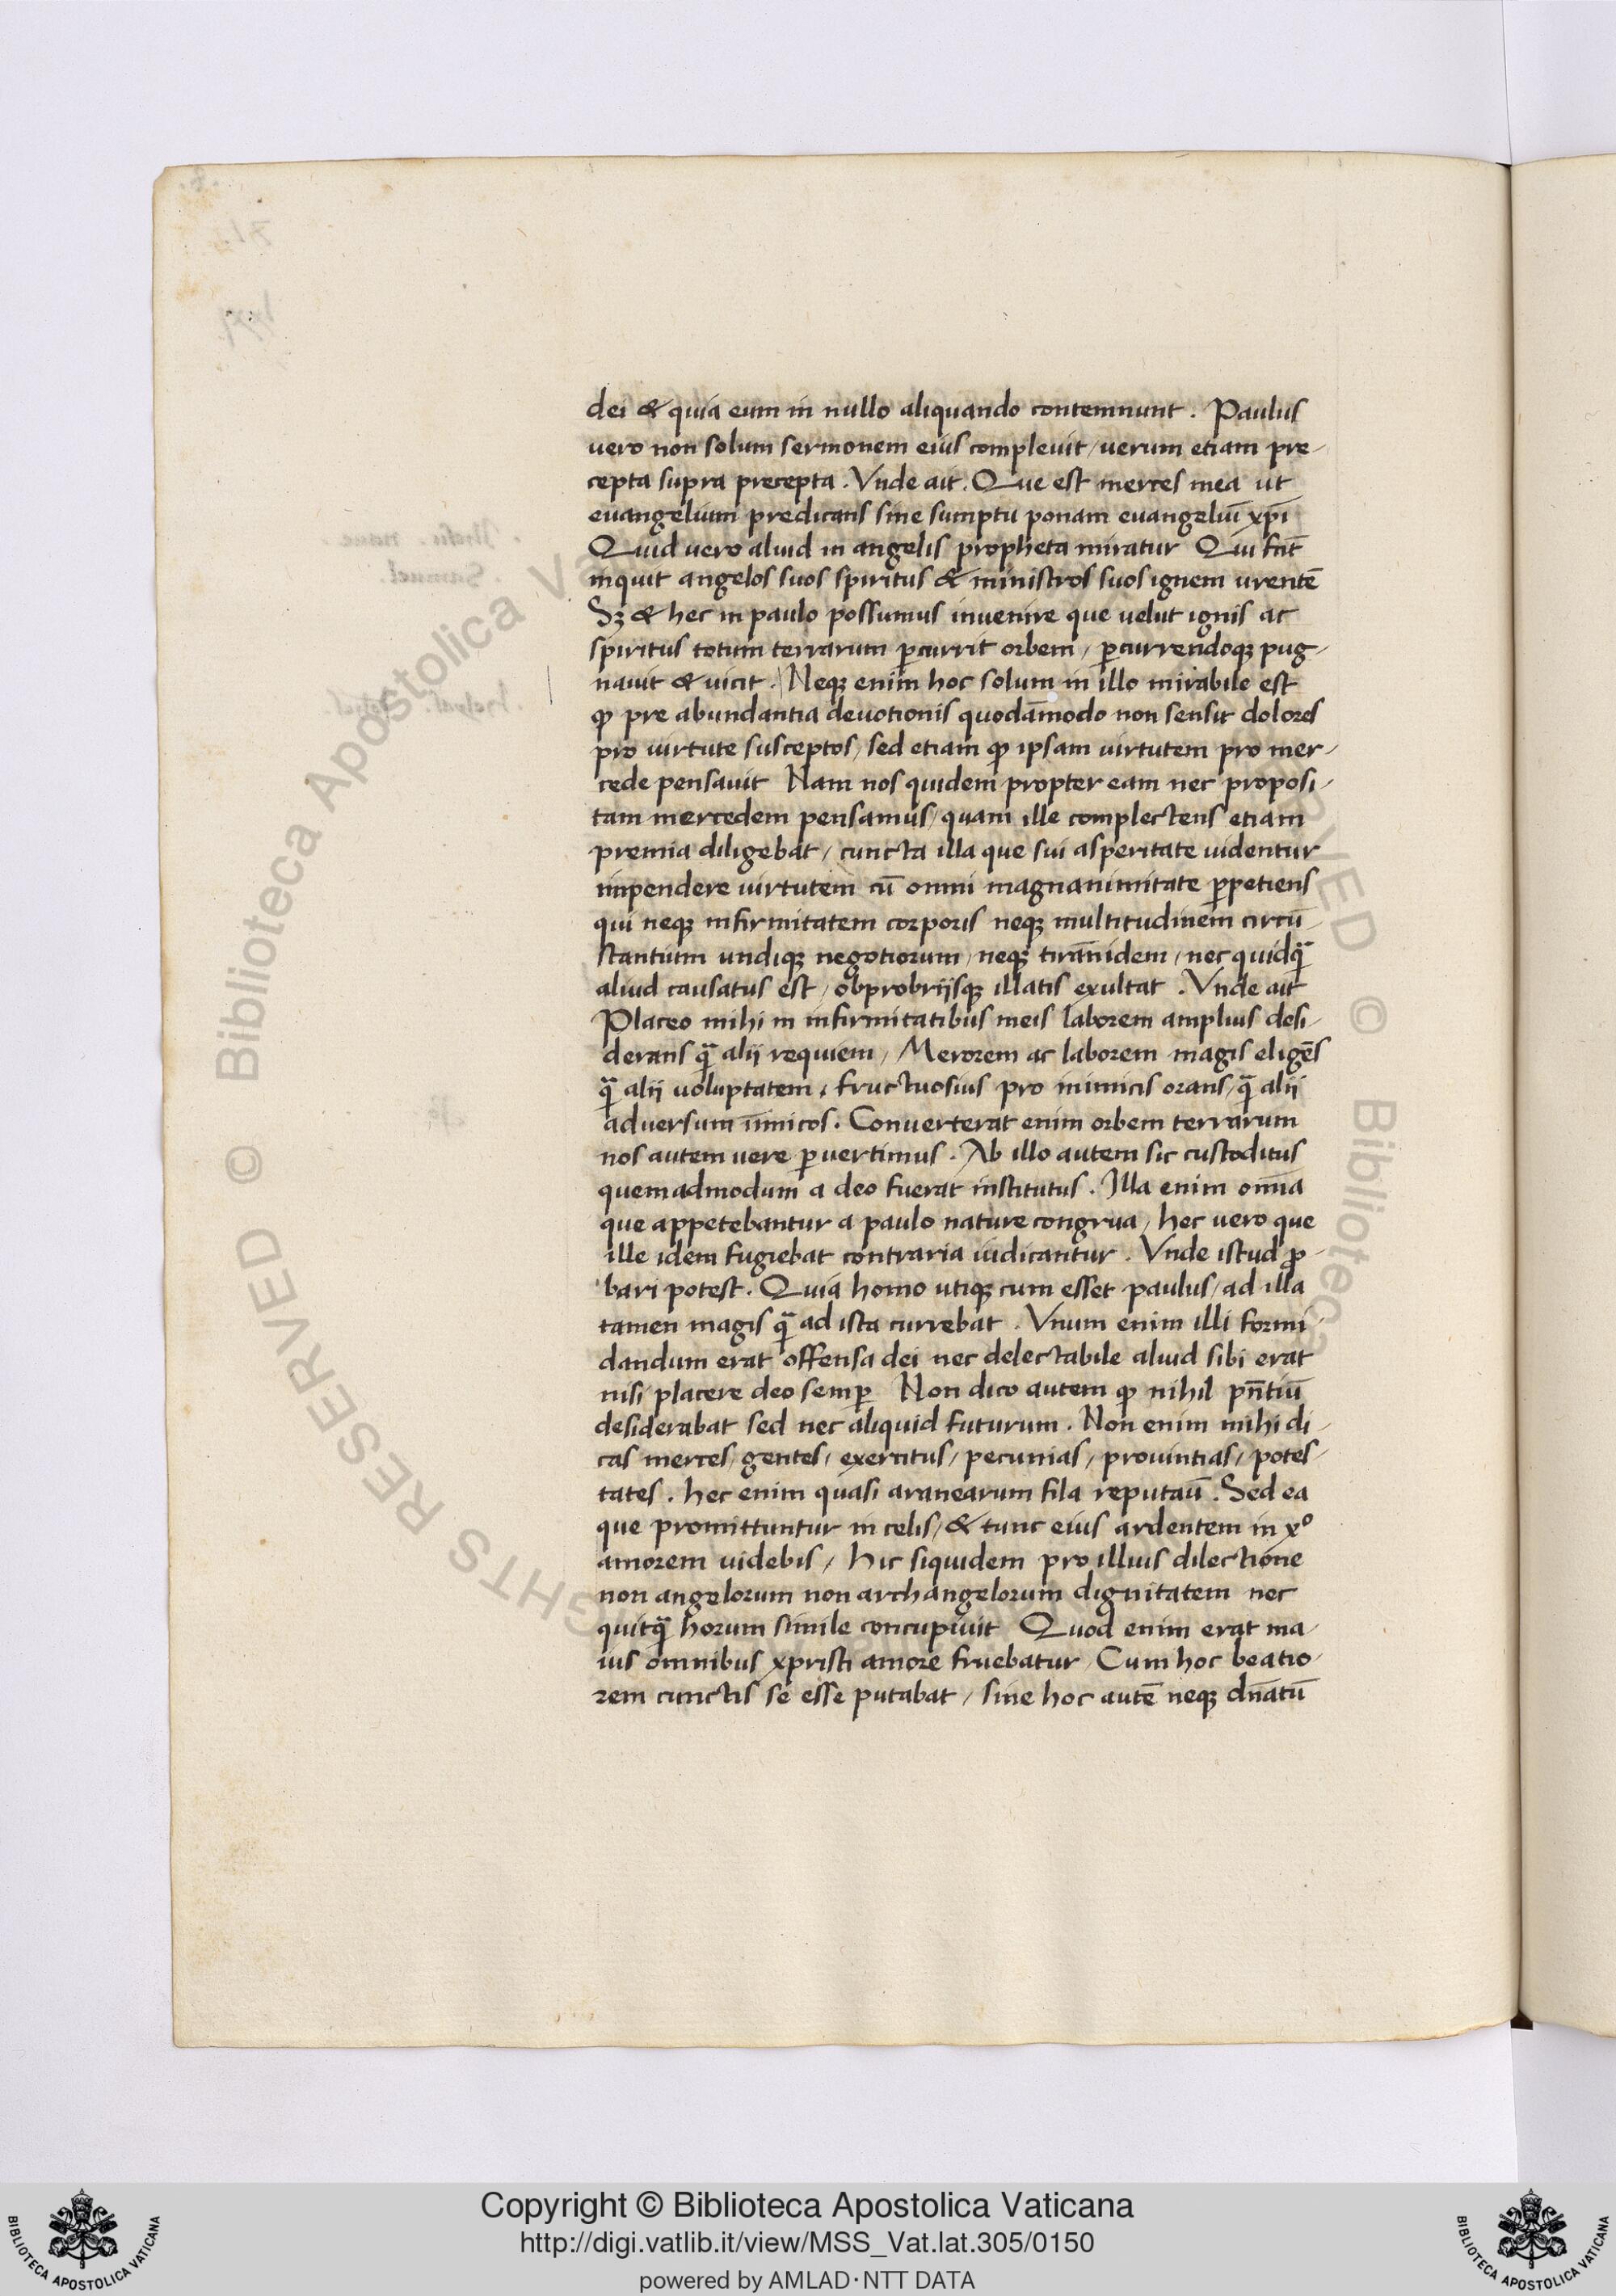 dei & quia eum in nullo aliquando contemnunt. Paulus
vero non solum sermonem eius complevit / verum etiam pre-
cepta supra precepta. Vnde ait. Que est merces mea ut
euangelium predicans sine sumptu ponam euangeliū xp̄i
Quid vero aliud in angelis propheta miratur Qui facit
inquit angelos suos spiritus & ministros suos ignem urentē
Sꝫ & hec in paulo possumus invenire que velut ignis ac
spiritus totum terrarum ꝑcurrit orbem / ꝑcurrendoqꝫ pug-
nauit & vicit. Neqꝫ enim hoc solum in illo mirabile est
ꝙ pre abundantia devotionis quodāmodo non sensit dolores
pro virtute susceptos / sed etiam ꝙ ipsam virtutem pro mer-
cede pensavit Nam nos quidem propter eam nec proposi-
tam mercedem pensamus / quam ille complectens etiam
premia diligebat / cuncta illa que sui asperitate videntur
impendere virtutem cū omni magnanimitate ꝑpetiens
qui neqꝫ infirmitatem corporis neqꝫ multitudinem circū-
stantium undiqꝫ negotiorum / neqꝫ tirānidem / nec quidꝗ̄
aliud causatus est / obprobriisqꝫ illatis exultat. Vnde ait
Placeo mihi in infirmitatibus meis laborem amplius desi-
derans ꝗ̄ alii requiem / Merorem ac laborem magis eligēs
ꝗ̄ alii voluptatem / fructuosius pro inimicis orans / ꝗ̄ alii
adversum īimicos. Converterat enim orbem terrarum
nos autem vere ꝑvertimus. Ab illo autem sic custoditus
quemadmodum a deo fuerat institutus. Illa enim omīa
que appetebantur a paulo nature congrua / hec vero que
ille idem fugiebat contraria iudicantur. Vnde istud ꝓ-
bari potest. Quia homo utiqꝫ cum esset paulus / ad illa
tamen magis ꝗ̄ ad ista currebat. Vnum enim illi formi-
dandum erat offensa dei nec delectabile aliud sibi erat
nisi placere deo semꝑ Non dico autem ꝙ nihil pn̄tiū
desiderabat sed nec aliquid futurum. Non enim mihi di-
cas merces / gentes / exercitus / pecunias / provintias / potes-
tates. hec enim quasi aranearum fila reputaū. Sed ea
que promittuntur in celis / & tunc eius ardentem in xº
amorem videbis / hic siquidem pro illius dilectione
non angelorum non archangelorum dignitatem nec
quitꝗ̄ horum simile concupivit Quod enim erat ma-
ius omnibus xpristi amore fruebatur / Cum hoc beatio-
rem cunctis se esse putabat / sine hoc autē neqꝫ dn̄atū
Copyright © Biblioteca Apostolica Vaticana
http://digi.vatlib.it/view/MSS_Vat.lat.305/0150
powered by AMLAD · NTT DATA
BIBLIOTECA APOSTOLICA VATICANA
BIBLIOTECA APOSTOLICA VATICANA